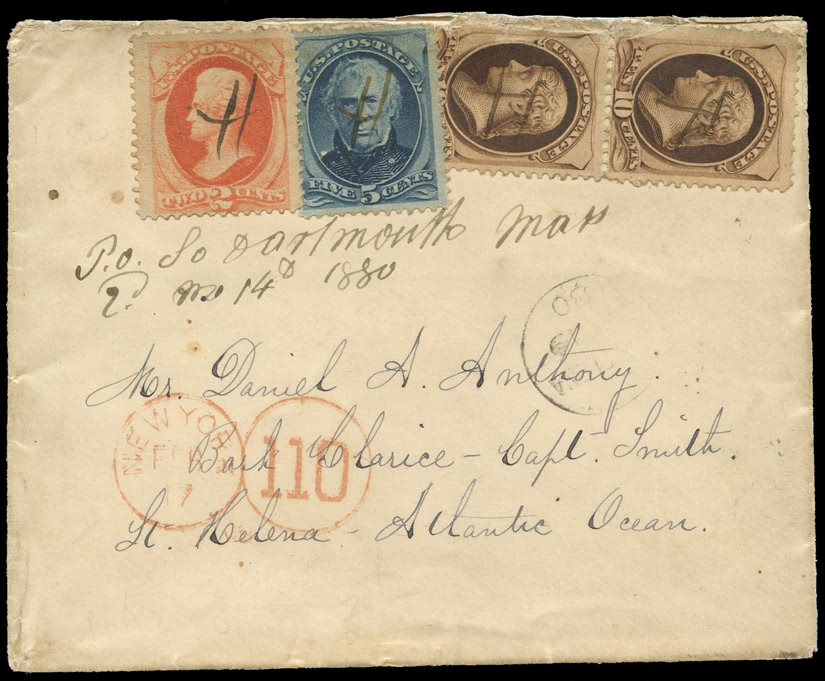 U.S. POSTAGE
TWO 2 CENTS
U.S. POSTAGE
FIVE 5 CENTS
U.S. POSTAGE
U.S. POSTAGE
10
CENTS
P.O. So Dartmouth Mass
2d mo 14th 1880
80
Mr. Daniel A. Anthony.
Bark Clarice - Capt. Smith.
St. Helena - Atlantic Ocean.
NEW YORK
FEB
17
110